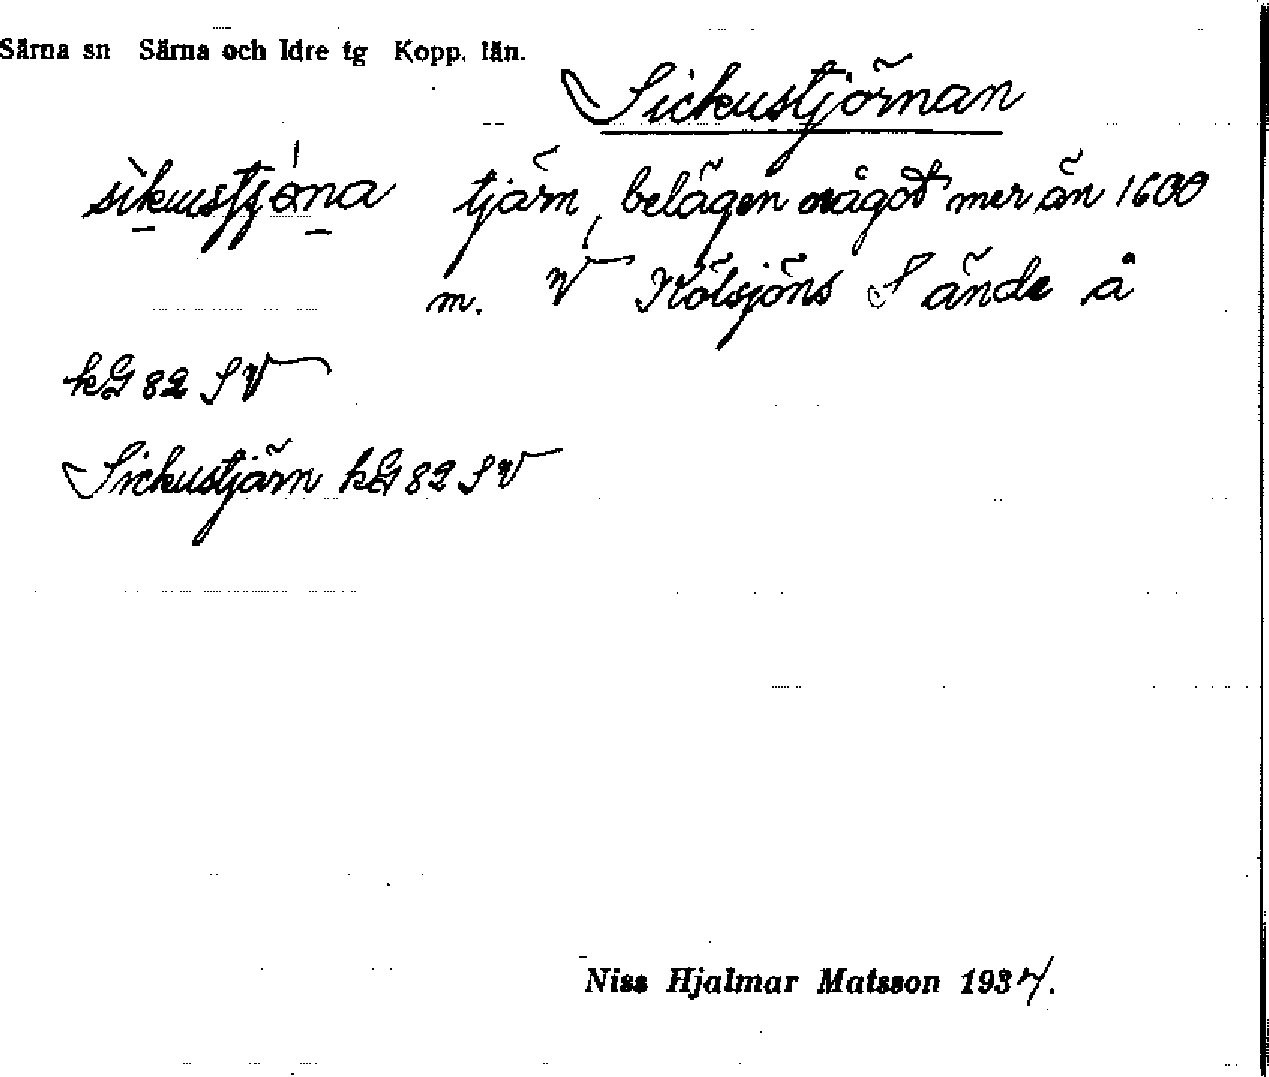 Särna sn Särna och Idre tg Kopp. län.
Sickustjörnan
sikustjöna tjärn, belägen något mer än 1600
m. V Kölsjöns S ände å
kG 82 SV
Sickustjärn kG 82 SV
Niss Hjalmar Matsson 1937.